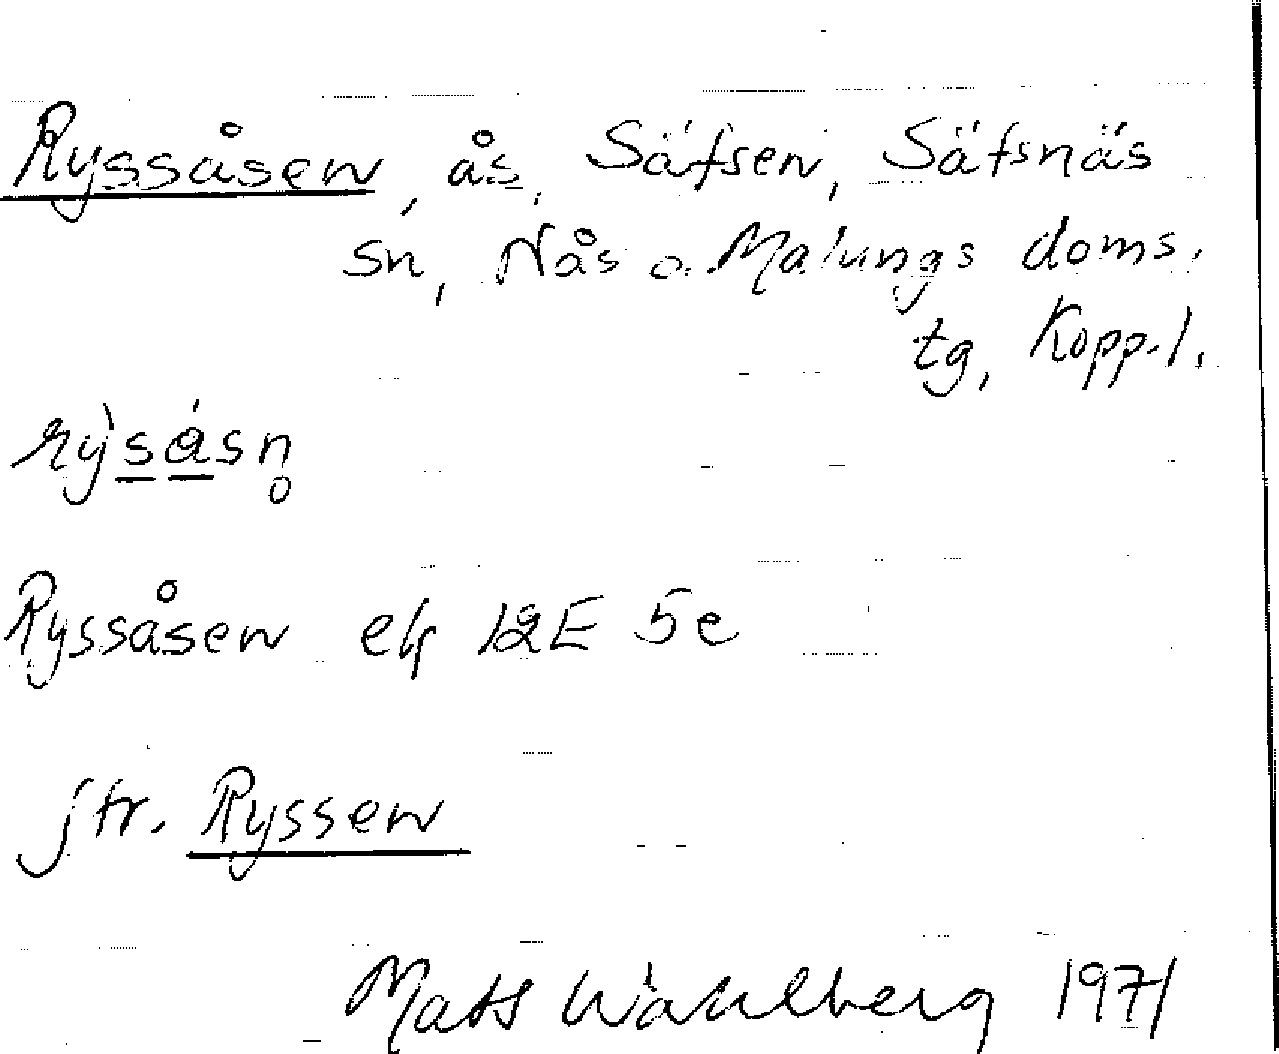 Ryssåsen, ås, Säfsen, Säfsnäs
sn, Nås o. Malungs doms.
tg, Kopp.l.
rỳsásn̥
Ryssåsen ek 12E 5e
jfr. Ryssen
Mats Wahlberg 1971